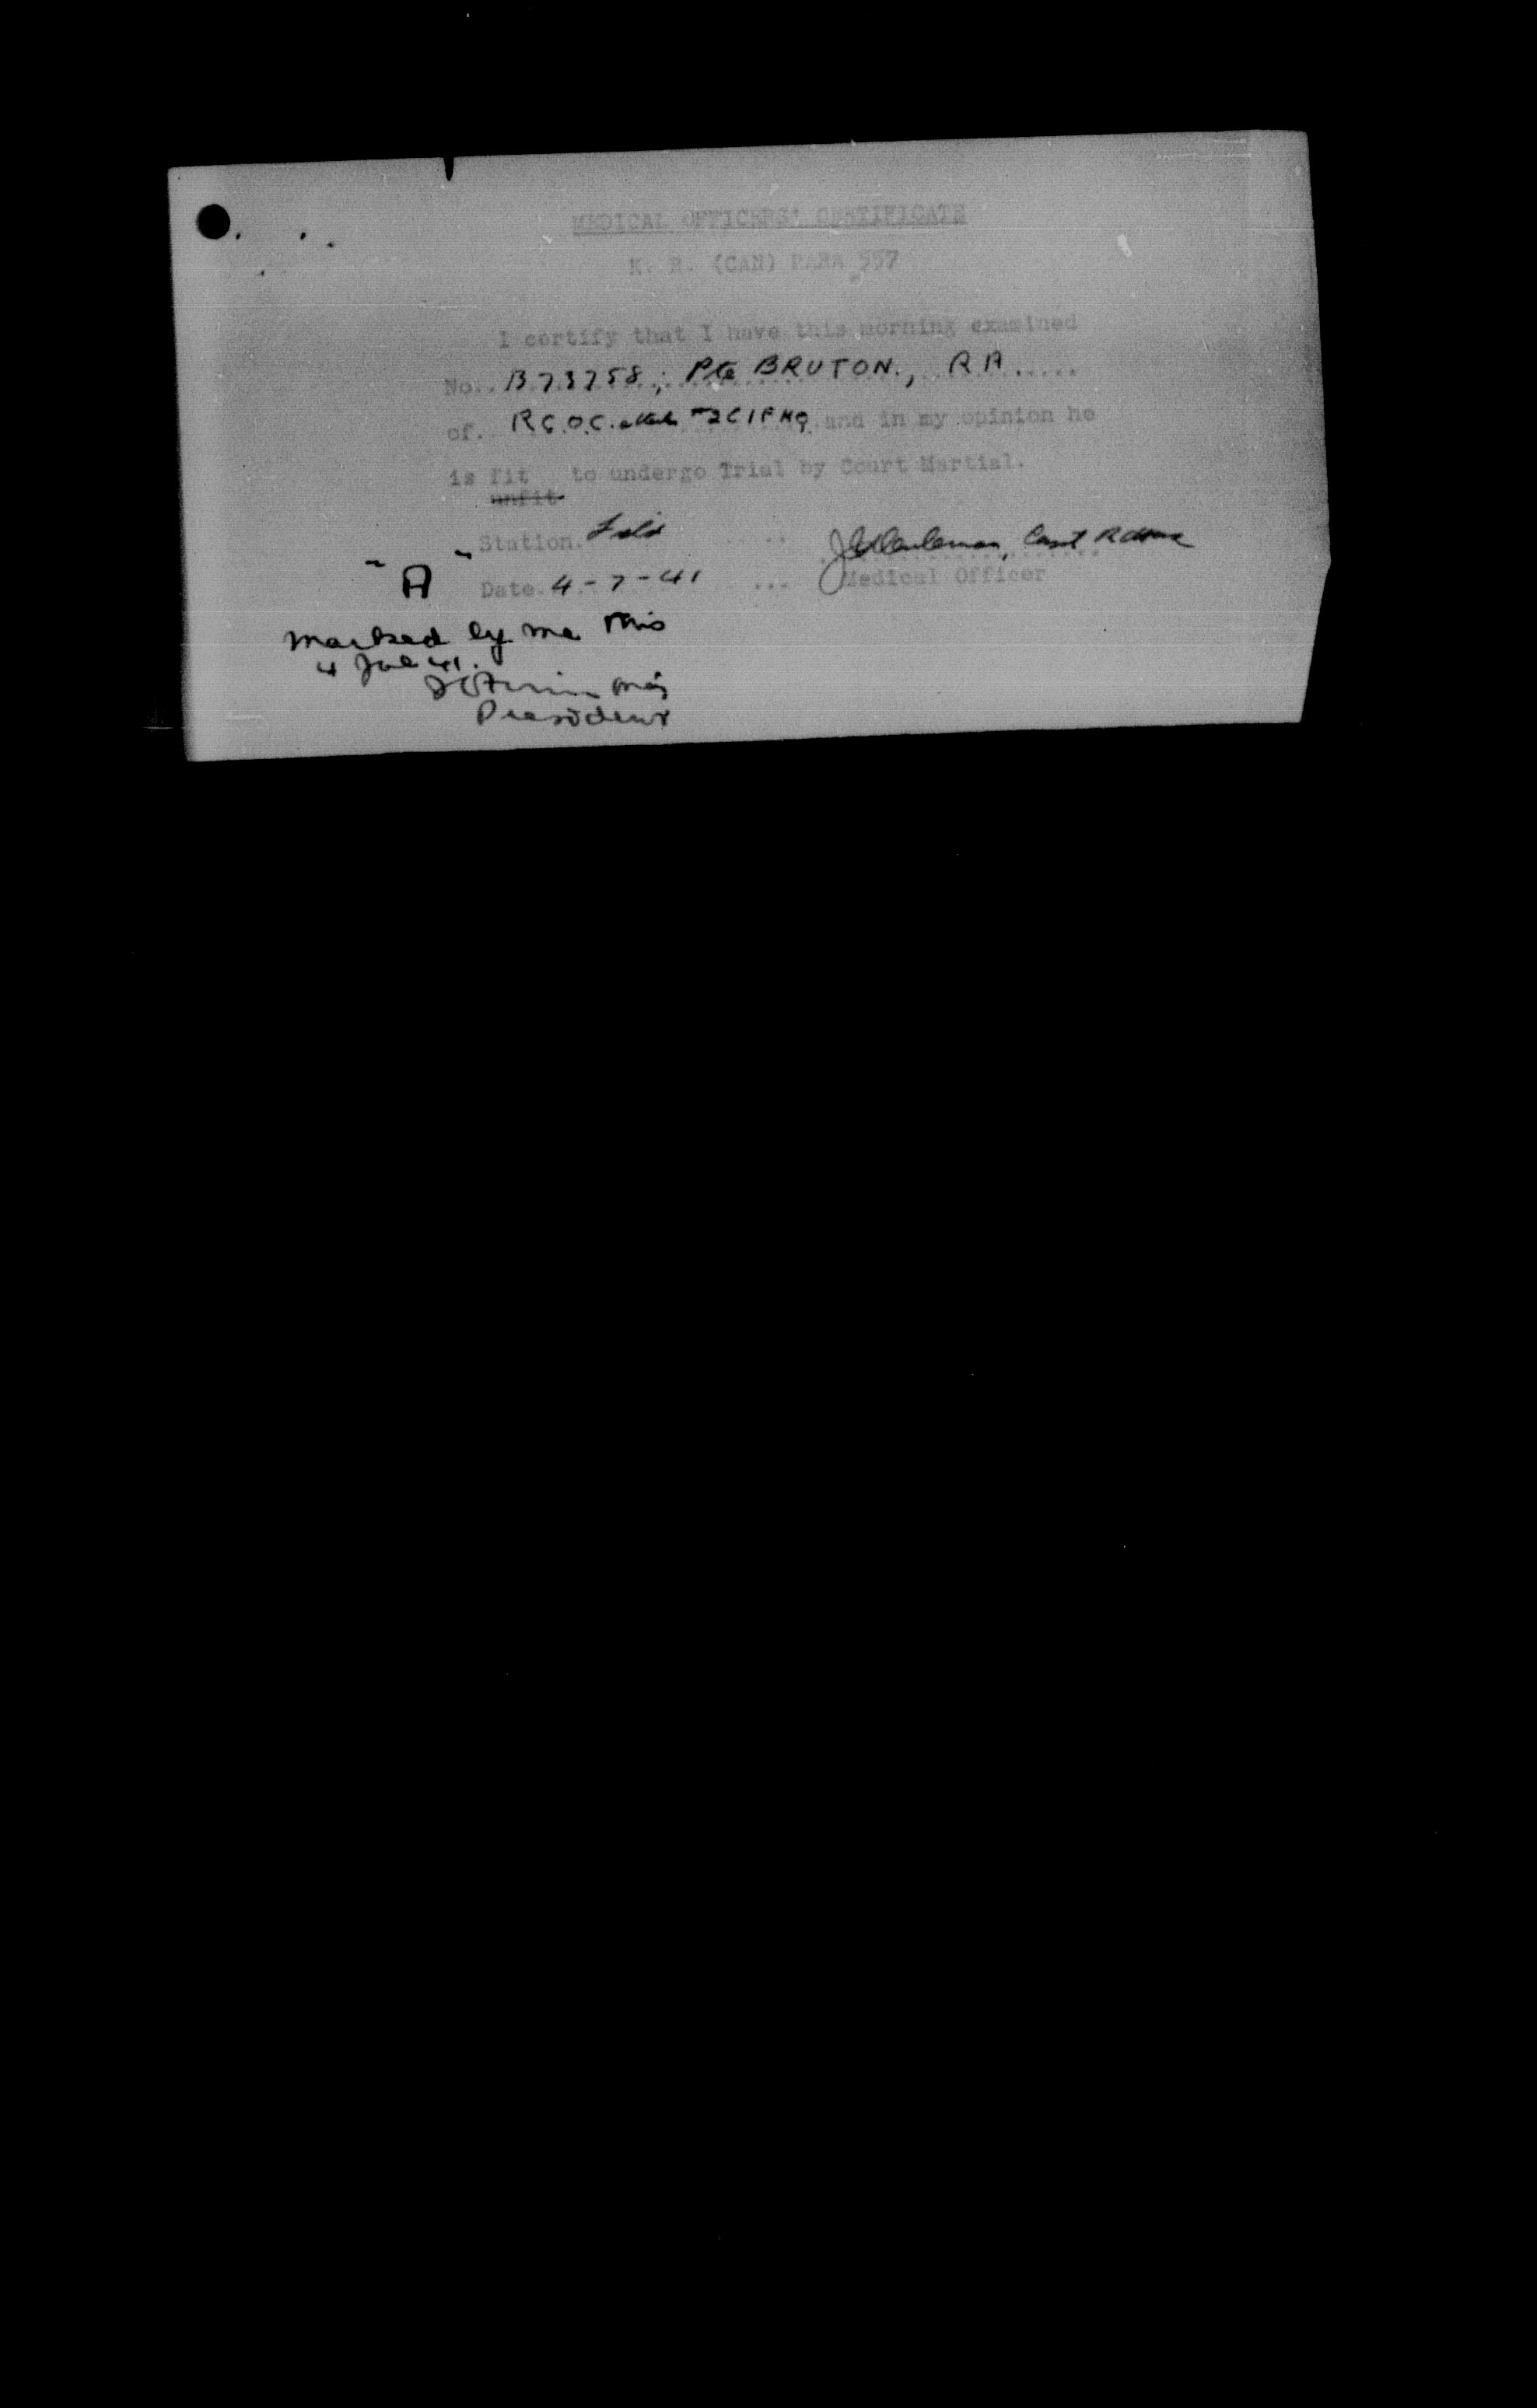 MEDICAL OFFICERS' CERTIFICATE
K. R. (CAN) PARA 557
I certify that I have this morning examined
No. B73758; Pte BRUTON., R A
of. R.C.O.C. and in my opinion he
is fit to undergo Trial by Court Martial.
unfit
Station.
"A" Date 4-7-41 Medical Officer
Marked by me this
4 Jul 41.
Maj
President